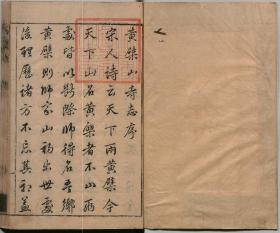 黃檗山寺志序
宋人詩云天下兩黃檗今
天下山名黃檗者不山而
處皆以斷際師得名吾鄉
黃檗則師家山始出世處
後歷諸方不忘其初蓋